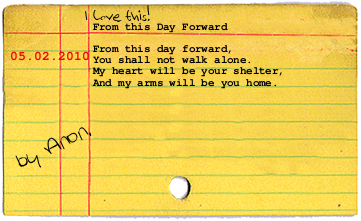 I love this!
From this Day Forward
From this day forward,
05.02.2010
You shall not walk alone.
My heart will be your shelter,
And my arms will be you home.
by Anon.